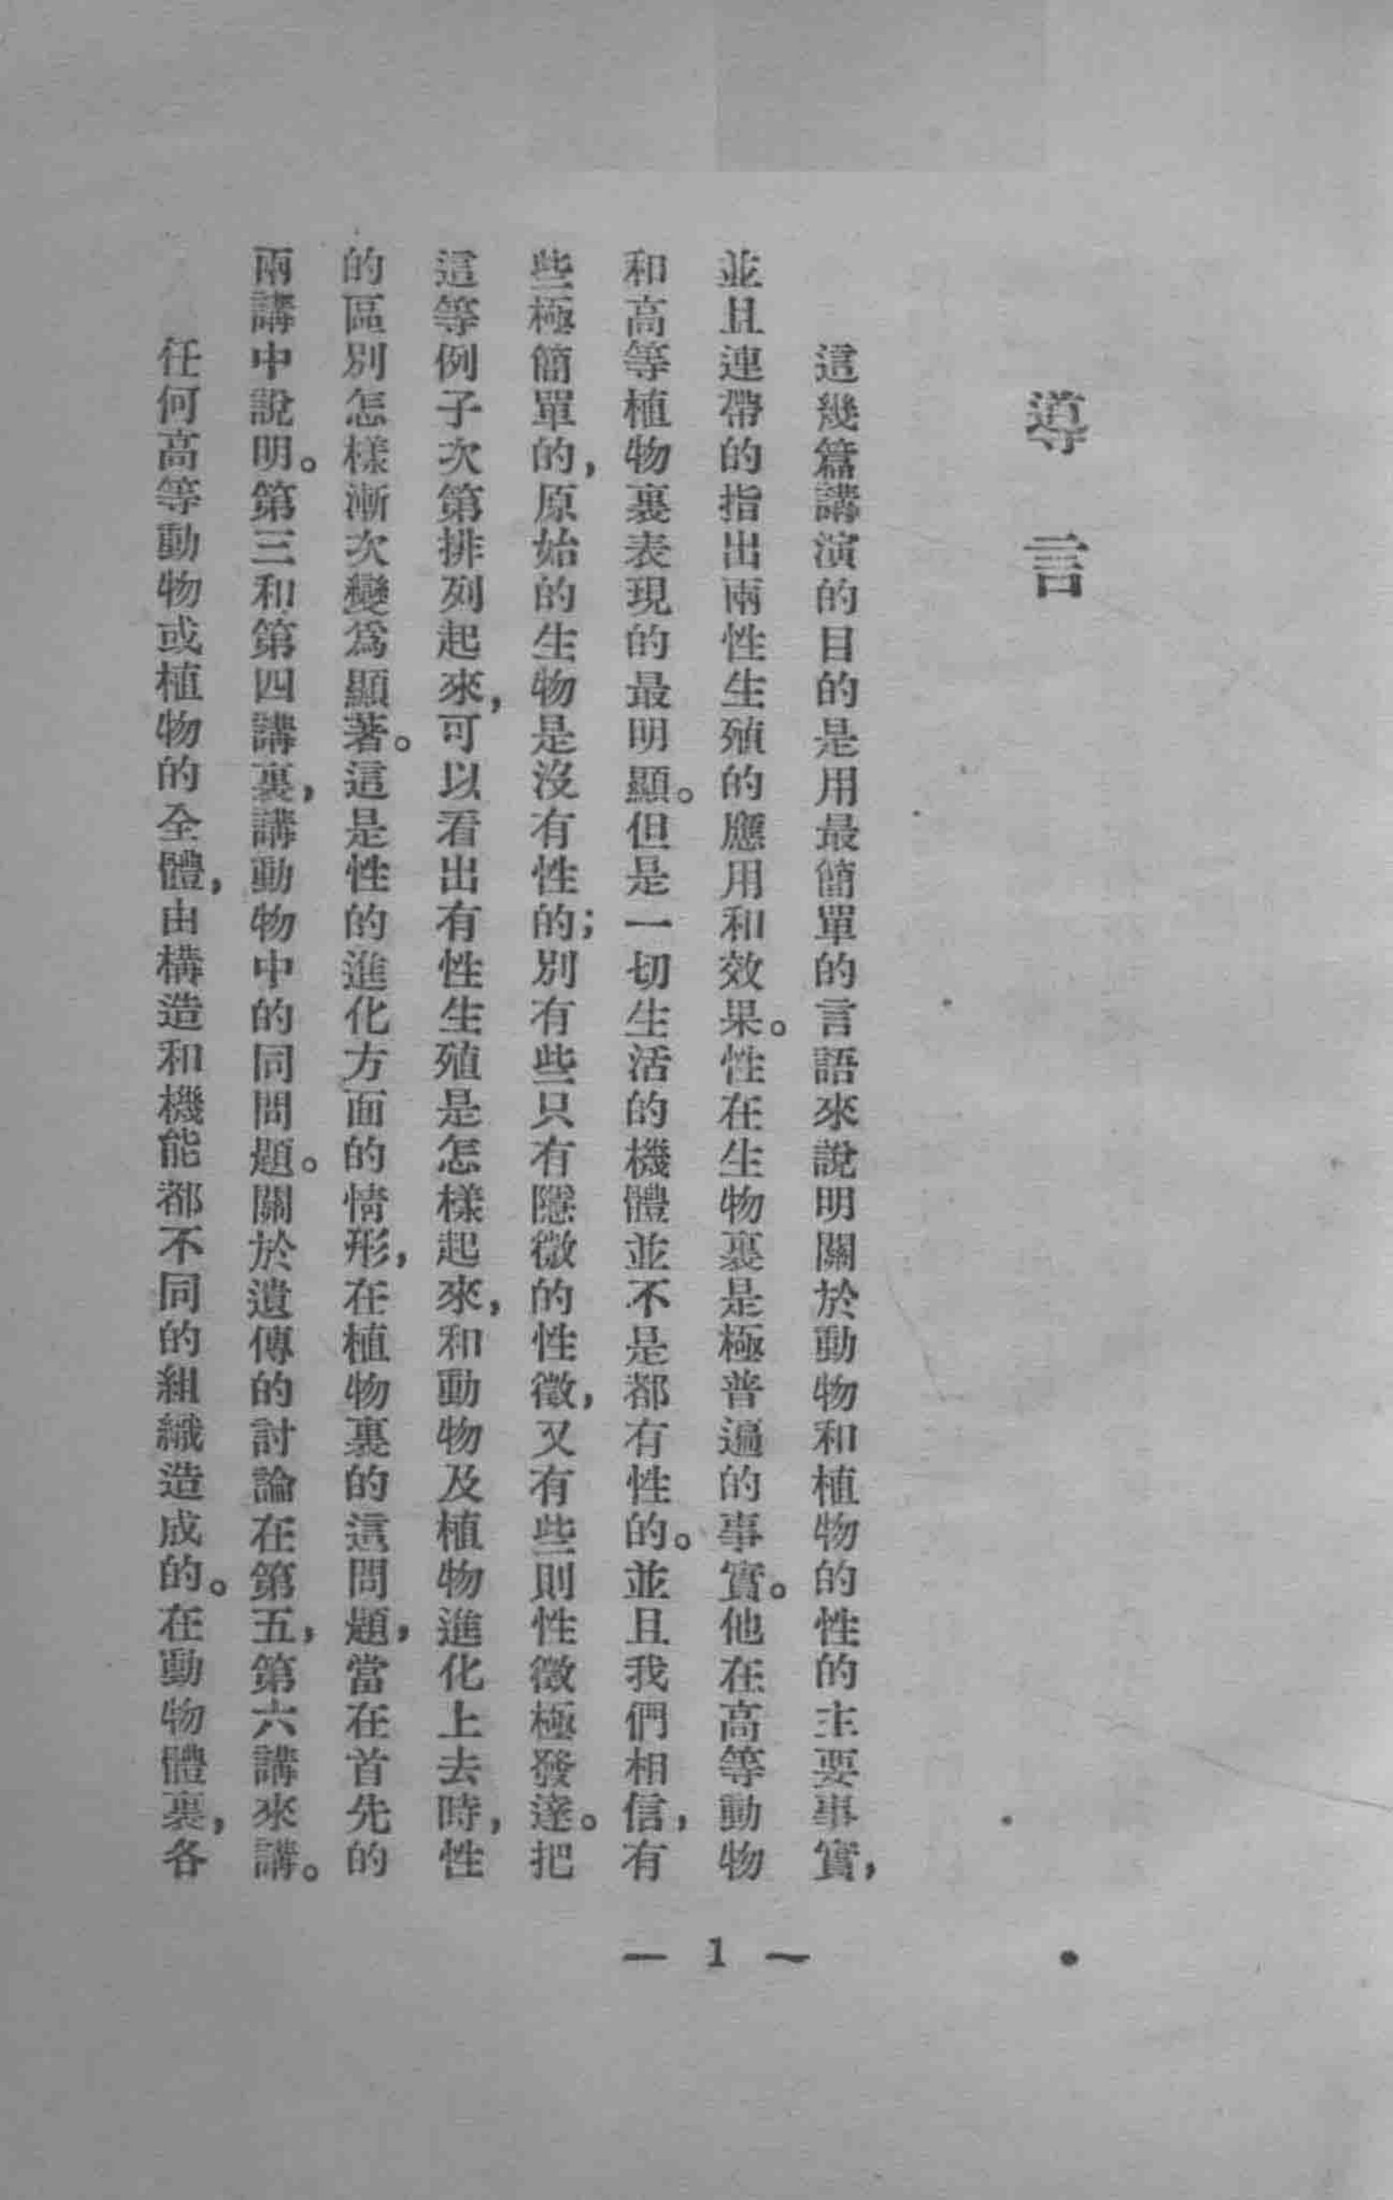 導言
這幾篇講演的目的是用最簡單的言語來說明關於動物和植物的性的主要事實，
並且連帶的指出兩性生殖的應用和效果。性在生物裏是極普遍的事實。他在高等動物
和高等植物裏表現的最明顯。但是一切生活的機體並不是都有性的。並且我們相信，有
些極簡單的，原始的生物是沒有性的；別有些只有隱微的性徵，又有些則性徵極發達。把
這等例子次第排列起來，可以看出有性生殖是怎樣起來，和動物及植物進化上去時，性
的區別怎樣漸次變爲顯著。這是性的進化方面的情形，在植物裏的這問題，當在首先的
兩講中說明。第三和第四講裏，講動物中的同問題。關於遺傳的討論在第五，第六講來講。
任何高等動物或植物的全體，由構造和機能都不同的組織造成的。在動物體裏，各
— 1 —